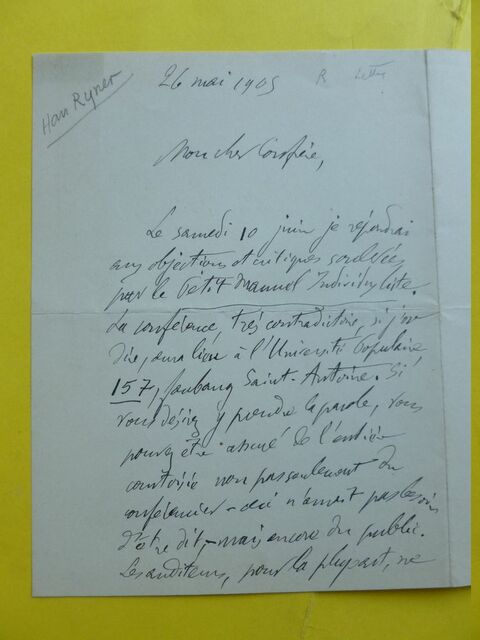 Han Ryner
26 mai 1905
R Lettre
Mon cher Confrère,
Le samedi 10 juin je répondrai
aux objections et critiques soulevées
par le Petit Manuel Individualiste.
La conférence, très contradictoire, si j'ose
dire, aura lieu à l'Université Populaire
157, faubourg Saint-Antoine. Si
vous désirez y prendre la parole, vous
pouvez être assuré de l'entière
courtoisie non pas seulement du
conférencier – ceci n'avait pas besoin
d'être dit, – mais encore du public.
Les auditeurs, pour la plupart, ne